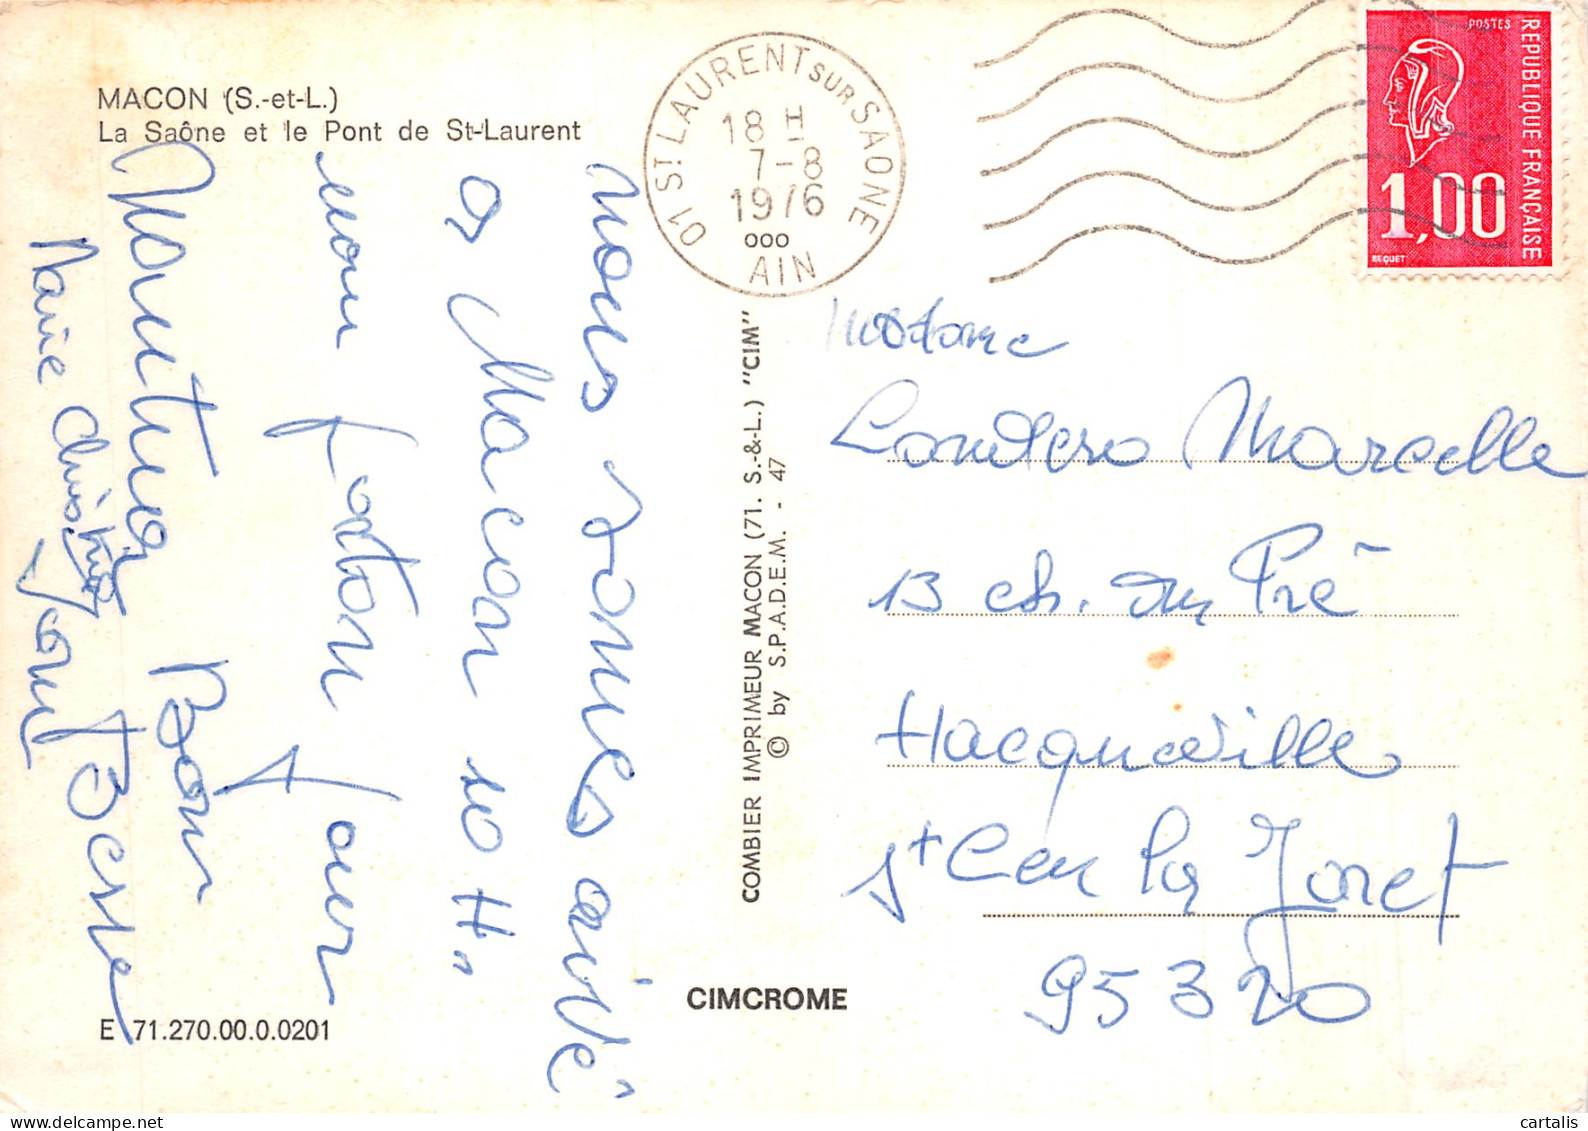 MACON (S.-et-L.)
La Saône et le Pont de St-Laurent
nous sommes arivé
a Macon 10 H.
mon
jour
Bon
Marie christine
Besse
E 71.270.00.0.0201
COMBIER IMPRIMEUR MACON (71. S.-&-L.) "CIM"
© by S.P.A.D.E.M. - 47
CIMCROME
01 ST LAURENT SUR SAONE
18 H
7-8
1976
000
AIN
POSTES
REPUBLIQUE FRANÇAISE
1,00
BEQUET
Madame
Landero Marcelle
13 ch. du Pré
Hacqueville
St Leu la Foret
95320
cartalis